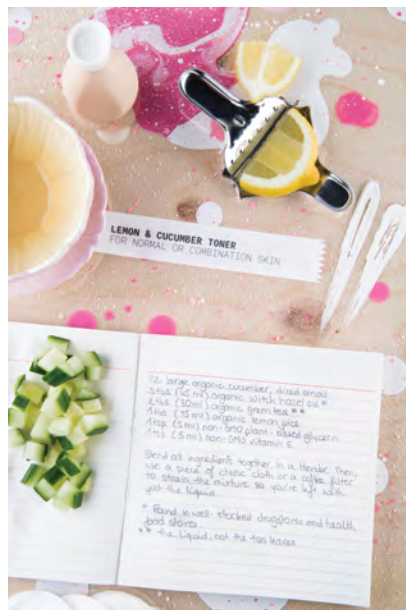 LEMON & CUCUMBER TONER
FOR NORMAL OR COMBINATION SKIN
1/2 large organic cucumber, diced small
3 tbs. (45 ml) organic witch hazel *
2 tbs. (30ml) organic green tea **
1 tbs. (15 ml) organic lemon juice
1 tsp. (5 ml) non-GMO plant-based glycerin
1 tsp. (5 ml) non-GMO vitamin E
Blend all ingredients together in a blender. Then,
use a piece of cheese cloth or a coffee filter
to strain the mixture so you're left with
just the liquid.
* Found in well-stocked drugstores and health
food stores.
** the liquid, not the tea leaves